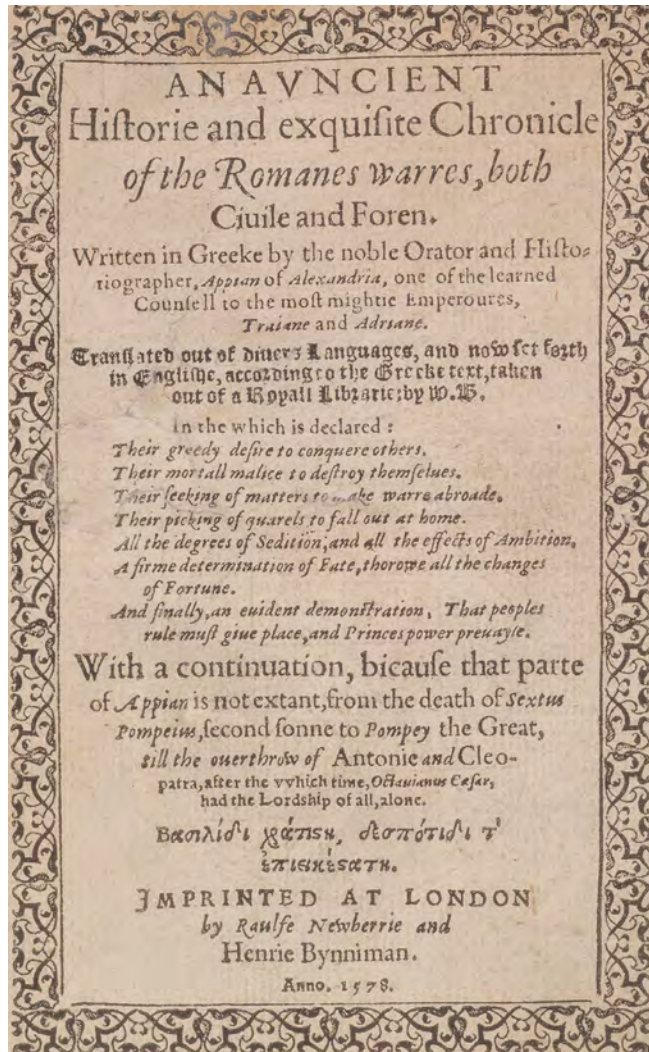 AN AVNCIENT
Hiſtorie and exquiſite Chronicle
of the Romanes warres, both
Ciuile and Foren.
Written in Greeke by the noble Orator and Hiſto-
riographer, Appian of Alexandria, one of the learned
Counſell to the moſt mightie Emperoures,
Traiane and Adriane.
Tranſlated out of diuers Languages, and now ſet forth
in Engliſhe, according to the Greeke text, taken
out of a Royall Librarie: by W. B.
In the which is declared:
Their greedy deſire to conquere others.
Their mortall malice to deſtroy themſelues.
Their ſeeking of matters to make warre abroade.
Their picking of quarels to fall out at home.
All the degrees of Sedition, and all the effects of Ambition.
A firme determination of Fate, thorowe all the changes
of Fortune.
And finally, an euident demonſtration, That peoples
rule muſt giue place, and Princes power preuayle.
With a continuation, bicauſe that parte
of Appian is not extant, from the death of Sextus
Pompeius, ſecond ſonne to Pompey the Great,
till the ouerthrow of Antonie and Cleo-
patra, after the vvhich time, Octauianus Cæſar,
had the Lordſhip of all, alone.
Βασιλίδι κρατίςῃ, δεσπότιδι τ'
ἐπιεικεςάτῃ.
IMPRINTED AT LONDON
by Raulfe Newberrie and
Henrie Bynniman.
Anno. 1578.